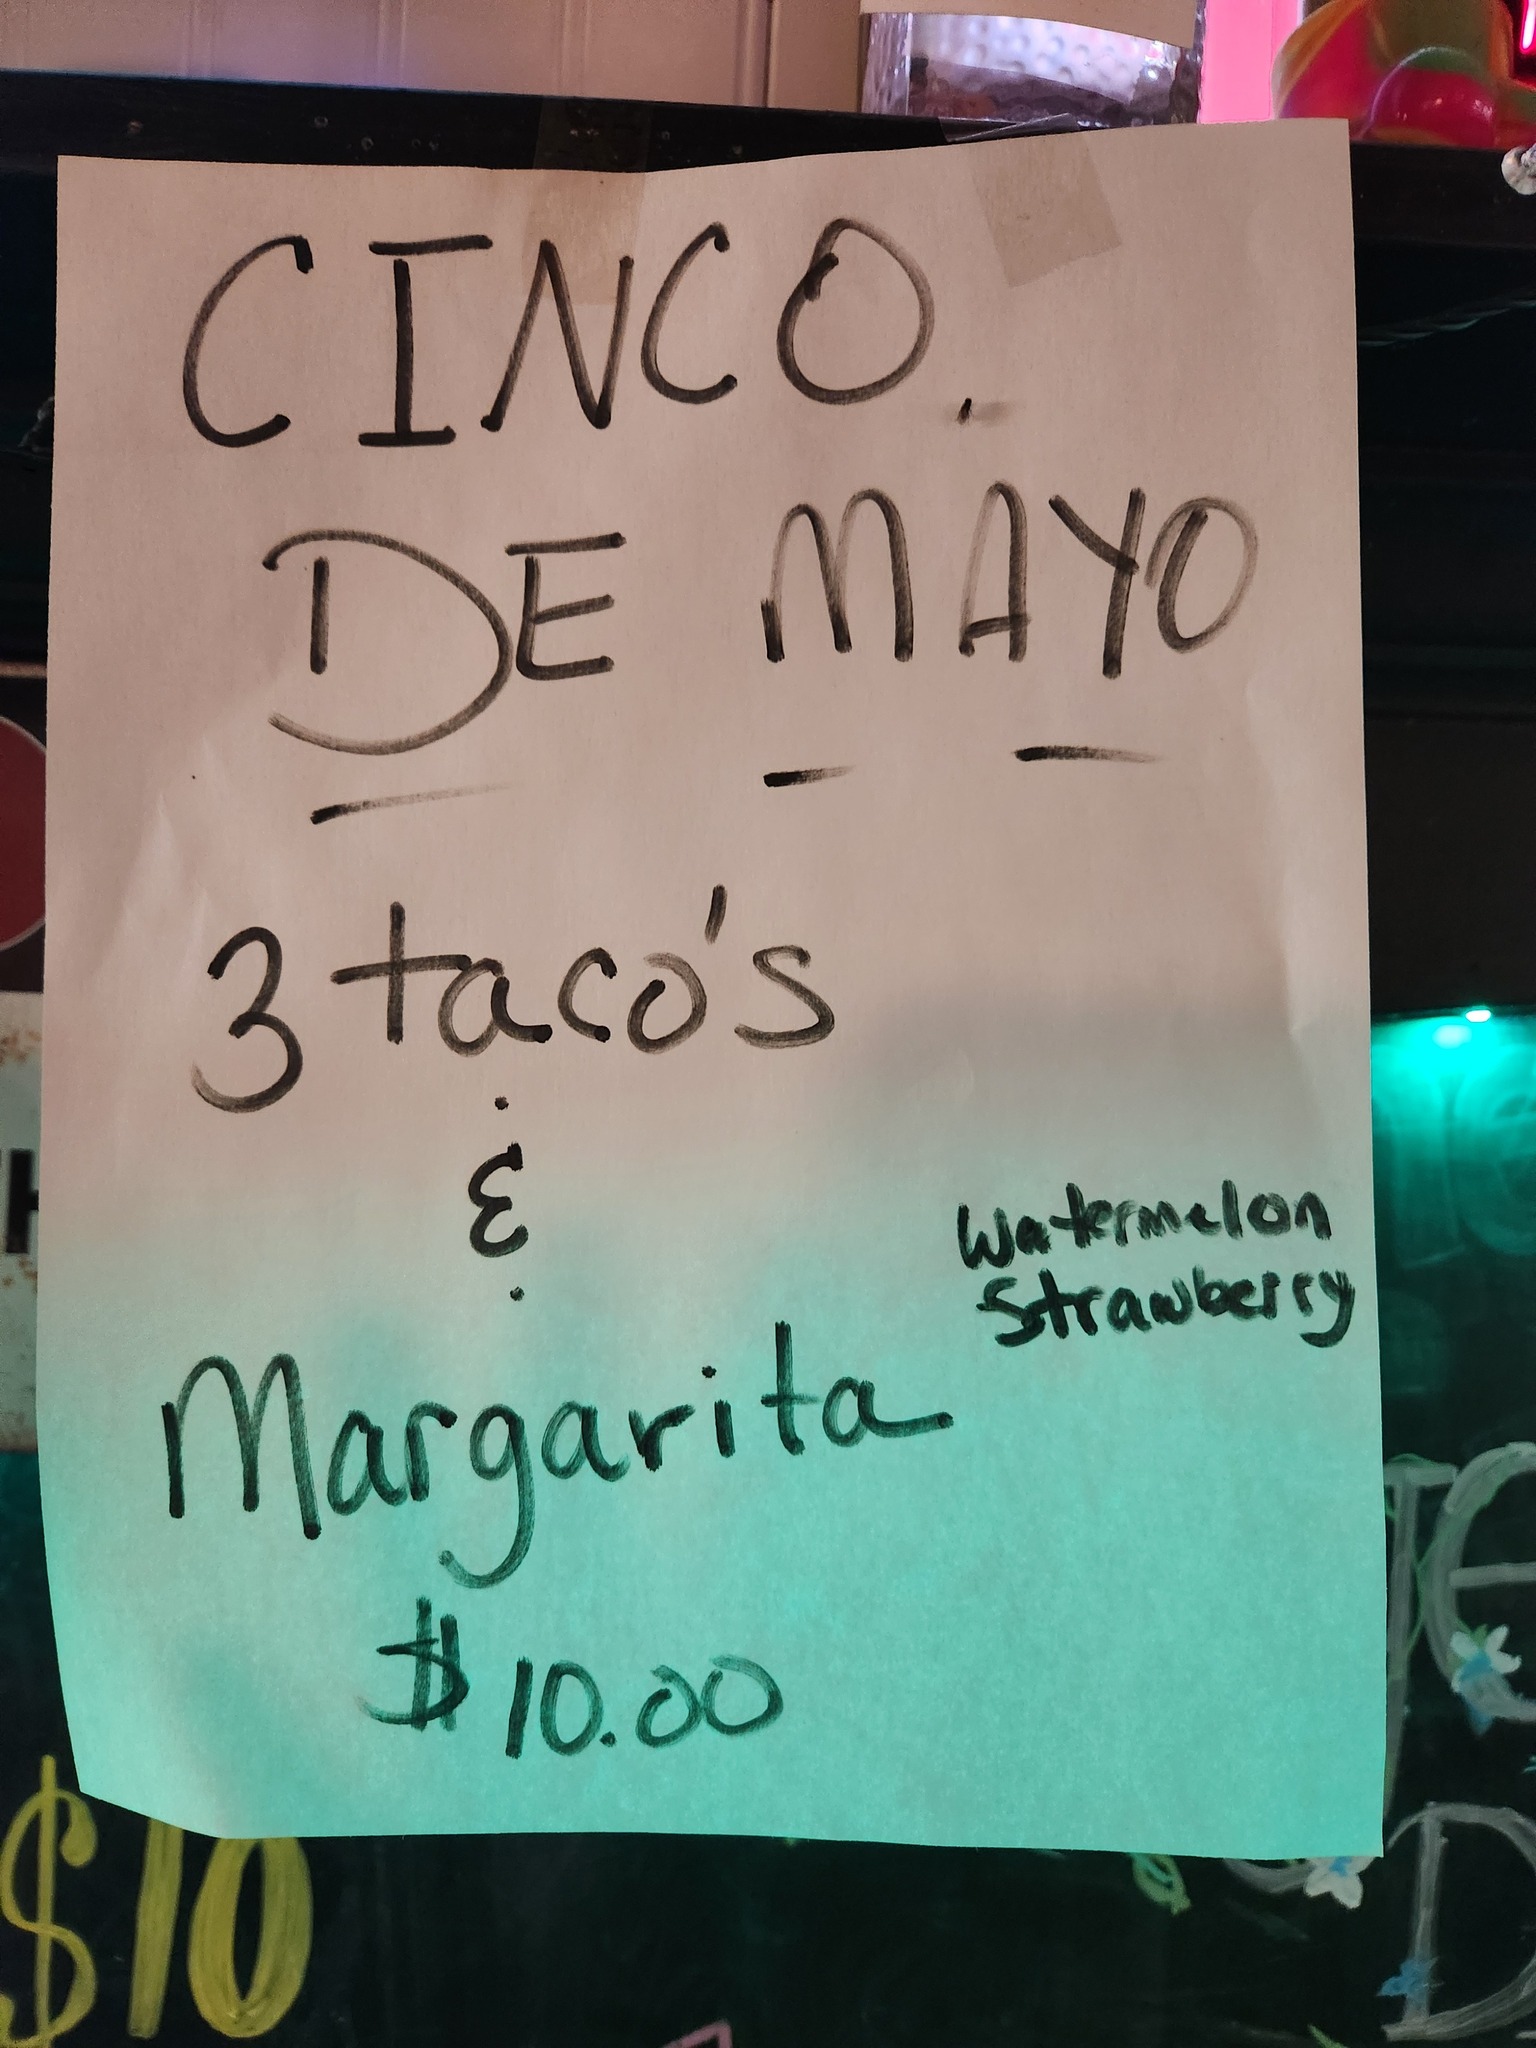 CINCO.
DE MAYO
3 taco's
&
Watermelon
Strawberry
Margarita
$10.00
$10